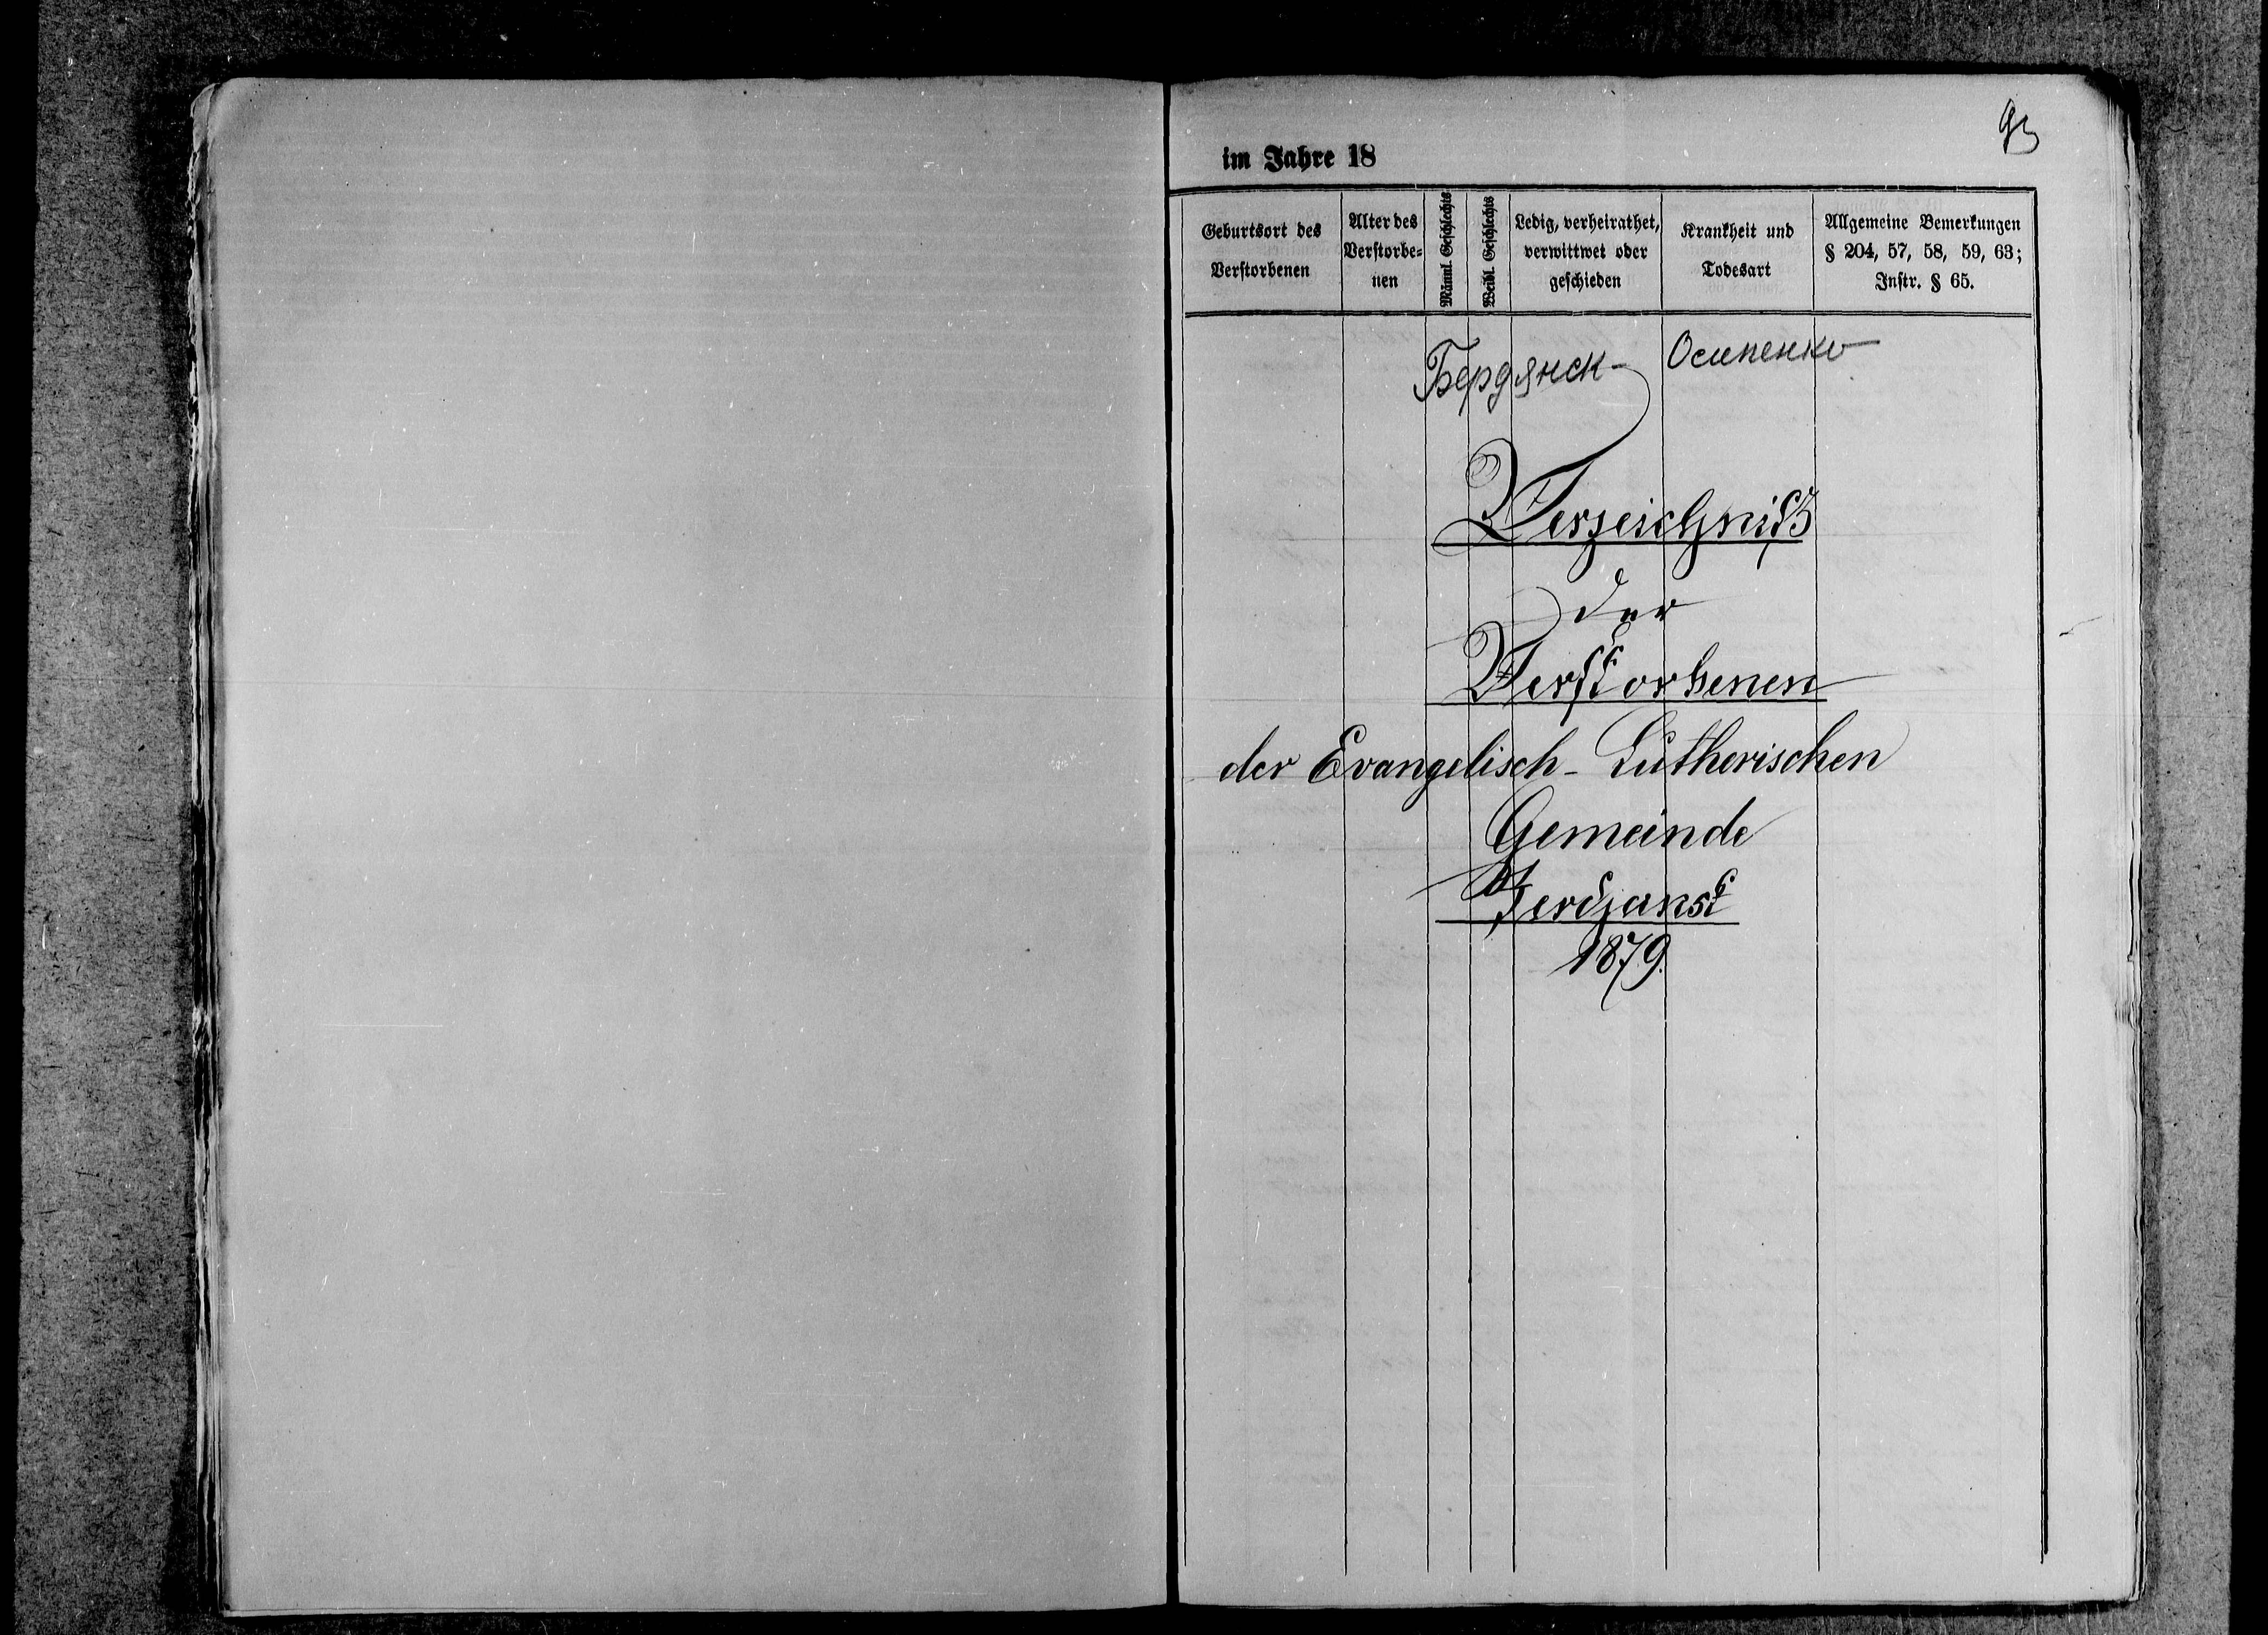 93
im Jahre 18
Geburtsort des
Verstorbenen
Alter des
Verstorbe=
nen
Männl. Geschlechts
Weibl. Geschlechts
Ledig, verheirathet,
verwittwet oder
geschieden
Krankheit und
Todesart
Allgemeine Bemerkungen
§ 204, 57, 58, 59, 63;
Instr. § 65.
Бердянск- Осипенко
Verzeichniß
der
Verstorbenen
der Evangelisch-Lutherischen
Gemeinde
Berdjansk
1879.